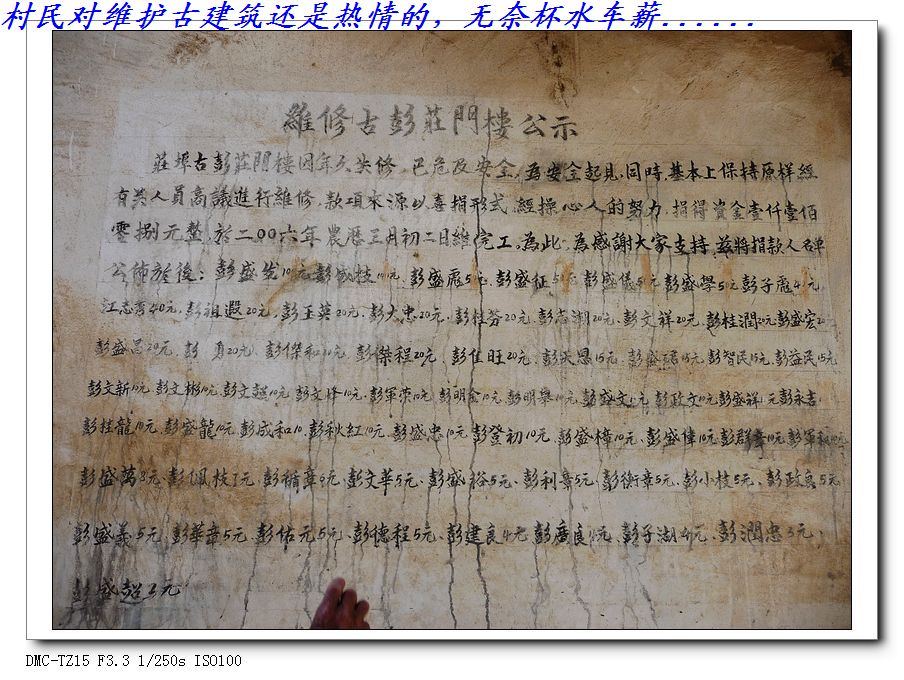 村民对维护古建筑还是热情的，无奈杯水车薪......
維修古彭莊門樓公示
莊埠古彭莊門樓因年久失修，已危及安全，為安全起見，同時，基本上保持原样，經
有关人員商議進行維修，款項來源以喜捐形式，經操心人的努力，捐得資金壹仟壹佰
零捌元整，於二〇〇六年農歷三月初二日維完工，為此，為感謝大家支持，兹將捐款人名单
公佈於後：彭盛发 彭盛枝 彭盛彪5元、彭盛征5 彭盛儀5元 彭盛學5元 彭子彪4元
江志秀40元、彭祖遐20元、彭玉英20元、彭大忠20元、彭桂芬20元、彭志湖20元、彭文祥20元、彭桂潤20元 彭盛宏20
彭盛昌20元、彭勇20元、彭傑和 元、彭傑程20元、彭佳旺20元、彭 恩15元、彭盛 15元、彭智民15元、彭益民15元
彭文新10元、彭文彬10元、彭文越10元、彭文烽10元、彭軍荣10元、彭明金10元、彭明舉10元、彭盛文 元、彭政文10元 彭盛祥 元 彭永吉
彭桂龍10元、彭盛龍10元、彭成和10、彭秋紅10元、彭盛忠10元、彭登初10元、彭盛樟10元、彭盛偉10元、彭群章10元、彭軍 10元
彭盛萬8元、彭佩枝7元、彭循章 元、彭文華5元、彭盛裕5元、彭利章5元、彭衡章5元、彭小枝5元、彭政良5元
彭盛義5元、彭華章5元、彭佑元5元、彭德程5元、彭建良4元 彭廣良4元、彭子湖4元、彭潤忠3元，
彭盛超3元
DMC-TZ15 F3.3 1/250s ISO100